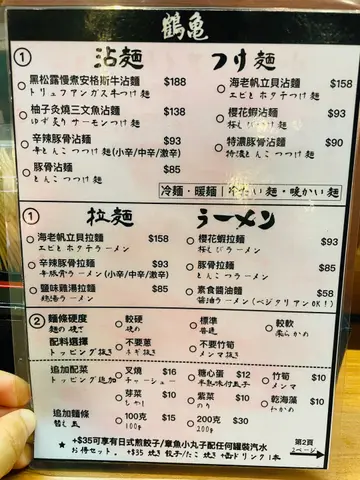 鶴亀
① 沾麵 つけ麺
黑松露慢煮安格斯牛沾麵 $188
トリュフアンガス牛つけ麺
海老帆立貝沾麵 $158
エビとホタテつけ麺
柚子灸燒三文魚沾麵 $138
ゆず炙りサーモンつけ麺
櫻花蝦沾麵 $93
桜えびつけ麺
辛辣豚骨沾麵 $93
辛とんこつつけ麺 (小辛/中辛/激辛)
特濃豚骨沾麵 $90
特濃とんこつつけ麺
豚骨沾麵 $85
とんこつつけ麺
冷麵・暖麵 | 冷たい麺・暖かい麺
① 拉麵 ラーメン
海老帆立貝拉麵 $158
エビとホタテラーメン
櫻花蝦拉麵 $93
桜えびラーメン
辛辣豚骨拉麵 $93
辛豚骨ラーメン (小辛/中辛/激辛)
豚骨拉麵 $85
とんこつラーメン
鹽味雞湯拉麵 $85
鶏湯ラーメン
素食醬油麵 $58
醤油ラーメン (ベジタリアンOK!)
② 麵條硬度 較硬 標準 較軟
麺の硬さ 硬め 普通 柔らかめ
配料選擇 不要蔥 不要竹筍
トッピング抜き ネギ抜き メンマ抜き
追加配菜 叉燒 $16 糖心蛋 $12 竹筍 $10
トッピング追加 チャーシュー 半熟味付玉子 メンマ
芽菜 $10 紫菜 $10 乾海藻 $10
もやし のり わかめ
追加麵條 100克 $15 200克 $30
替え玉 100g 200g
★ +$35可享有日式煎餃子/章魚小丸子配任何罐裝汽水
お得セット. +$35 焼き餃子/たこ焼き +缶ドリンク1本
第2頁
2ページ